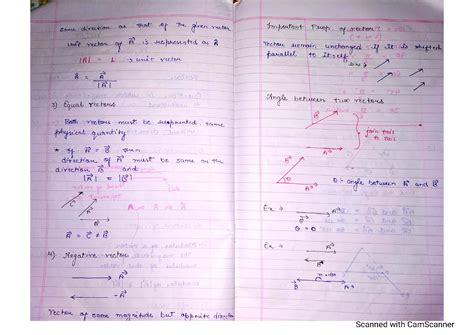 same direction as that of the given vector
unit vector of A is represented as Â
|Â| = 1 → unit vector
Â = A / |A|
3) Equal vectors
Both vectors must be represented same
physical quantity.
* if A = B then
direction of A must be same as the
direction B and
|A| = |B|
C A B
A = C ≠ B
4) Negative vectors
A
-A
Vector of same magnitude but opposite direction
Important Prop. of vector
Vector remain unchanged if it is shifted
parallel to itself.
Angle between two vectors
A
B
join tail
to tail
B
θ
A
θ - angle between A and B
Ex →
A
B
θ = 0
Ex →
A
B
Scanned with CamScanner